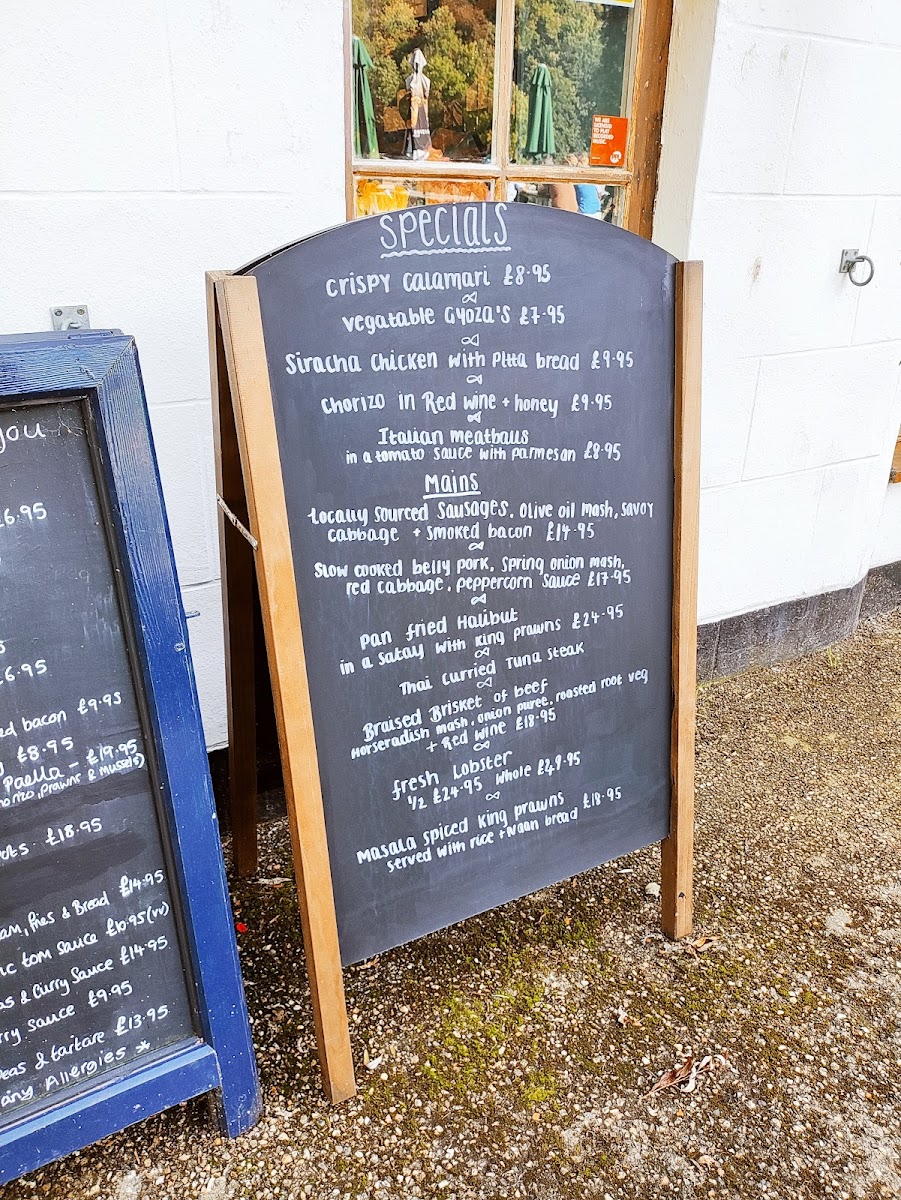 WE ARE
LICENSED
TO PLAY
RECORDED
MUSIC
Specials
Crispy Calamari £8.95
Vegatable Gyoza's £7.95
Siracha Chicken with Pitta bread £9.95
Chorizo in Red wine + honey £9.95
Italian meatballs
in a tomato sauce with parmesan £8.95
Mains
Locally sourced Sausages, Olive oil mash, savoy
cabbage + smoked bacon £14.95
Slow cooked belly pork, spring onion mash,
red cabbage, peppercorn sauce £17.95
Pan fried Halibut
in a satay with king prawns £24.95
Thai curried Tuna steak
Braised Brisket of beef
Horseradish mash, onion puree, roasted root veg
+ Red wine £18.95
fresh Lobster
1/2 £24.95 whole £49.95
Masala spiced King prawns £18.95
served with rice + Naan bread
you
£6.95
£6.95
bacon £9.95
£8.95
Paella - £19.95
Prawns & Mussels)
£18.95
fries & Bread £14.95
tom sauce £10.95 (vv)
& Curry Sauce £14.95
sauce £9.95
& tartare £13.95
any Allergies *